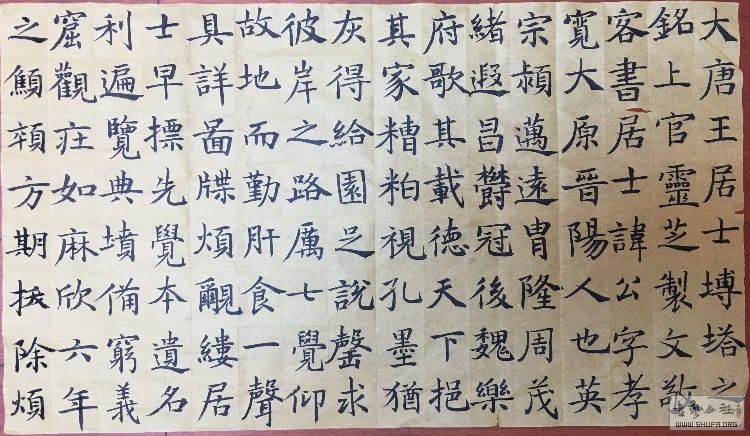 大唐王居士塼塔之
銘上官靈芝製文敬
客書居士諱公字孝
寬大原晉陽人也英
宗頴邁遠胄隆周茂
緒遐昌欝冠後魏樂
府歌其載德天下挹
其家糟粕視孔墨猶
灰得給園足說罄求
彼岸之路厲七覺仰
故地而勤肝食一聲
具詳啚牒煩覼縷居
士早摽先覺本遺名
利遍覽典墳備窮義
窟觀庄如麻欣六年
之顇方期拔除煩
WWW.SHUFA.ORG